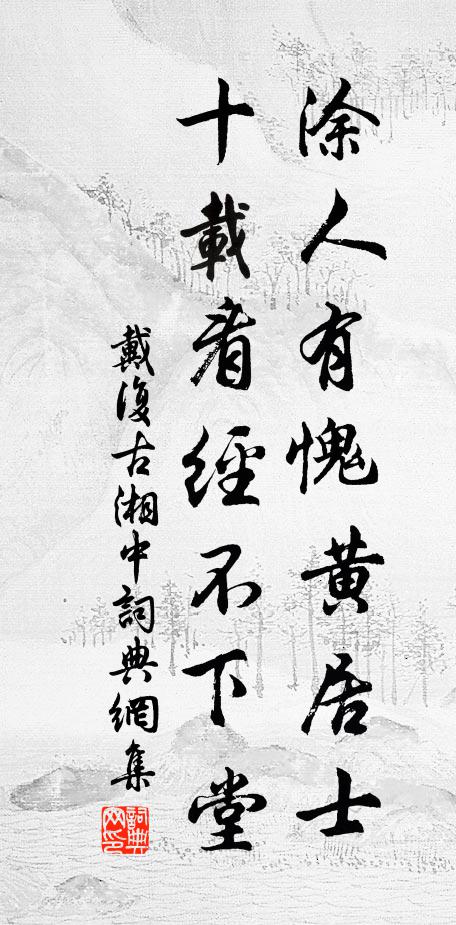 涂人有愧黄居士
十載看經不下堂
戴復古湘中詞典網集
詞典网印